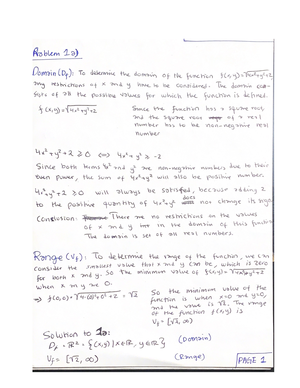 Problem 1a)
Domain(Df): To determine the domain of the function f(x,y)=√4x²+y²+2
any restrictions of x and y have to be considered. The domain con-
sists of all the possible values for which the function is defined.
f(x,y)=√4x²+y²+2
Since the function has a square root,
and the square root of a real
number has to be non-negative real
number
4x²+y²+2 ≥ 0 ⟺ 4x²+y² ≥ -2
Since both terms x² and y² are non-negative numbers due to their
even power, the sum of 4x²+y² will also be positive number.
4x²+y²+2 ≥ 0 will always be satisfied, because adding 2
to the positive quantity of 4x²+y² does not change its sign
Conclusion: There are no restrictions on the values
of x and y in the domain of this function
The domain is set of all real numbers.
Range(Vf): To determine the range of the function, we can
consider the smallest value that x and y can be, which is zero
for both x and y. So the minimum value of f(x,y)=√4x²+y²+2
when x and y are 0.
⇒ f(0,0)=√4·(0)²+0²+2 = √2
So the minimum value of the
function is when x=0 and y=0,
and the value is √2. The range
of the function f(x,y) is
Vf = [√2, ∞)
Solution to 1a:
Df = ℝ² = {(x,y) | x∈ℝ, y∈ℝ} (Domain)
Vf = [√2, ∞) (Range)
PAGE 1